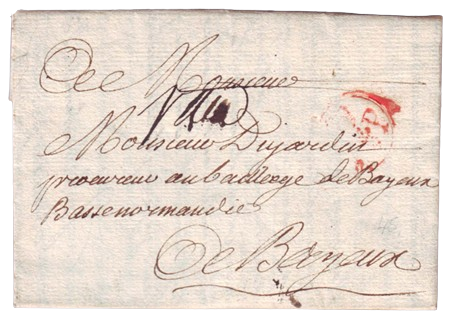 A Monsieur
Monsieur Dujardin
procureur au bailleage de Bayeux
Basse normandie
A Bayeux